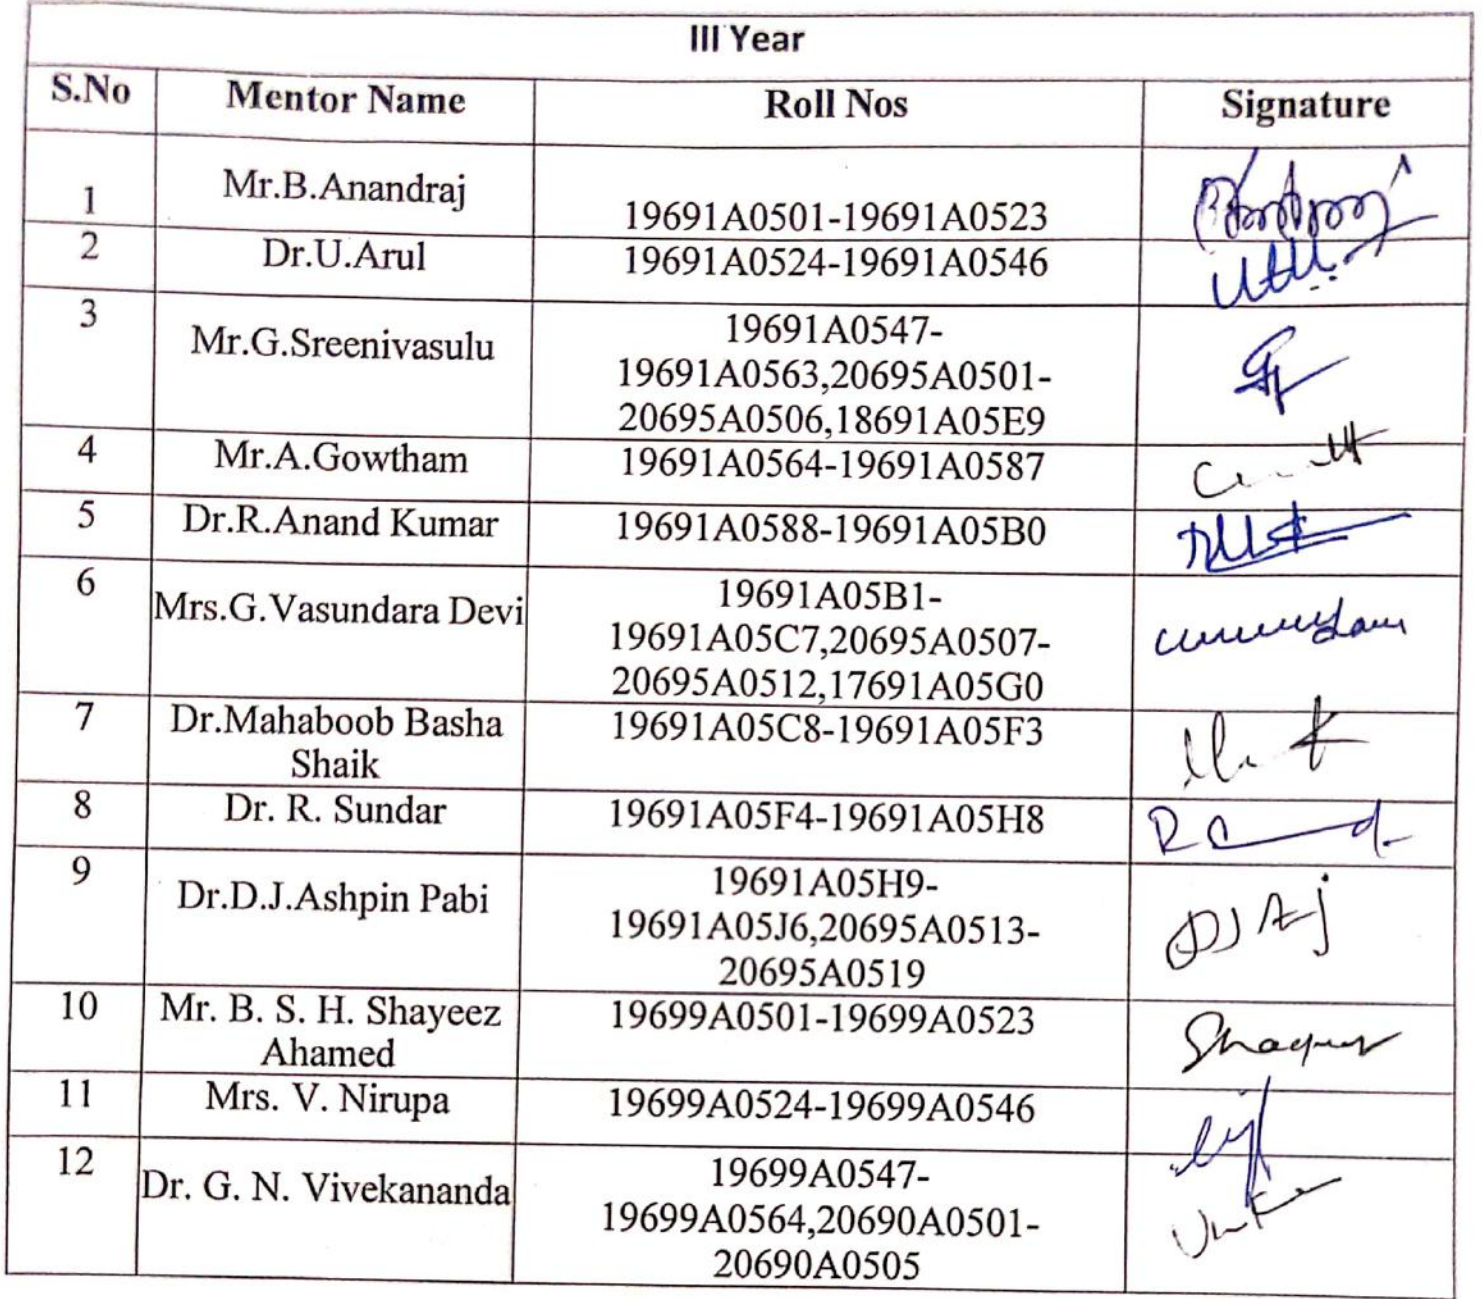 III Year
S.No Mentor Name Roll Nos Signature
1 Mr.B.Anandraj 19691A0501-19691A0523
2 Dr.U.Arul 19691A0524-19691A0546
3 Mr.G.Sreenivasulu 19691A0547-
19691A0563,20695A0501-
20695A0506,18691A05E9
4 Mr.A.Gowtham 19691A0564-19691A0587
5 Dr.R.Anand Kumar 19691A0588-19691A05B0
6 Mrs.G.Vasundara Devi 19691A05B1-
19691A05C7,20695A0507-
20695A0512,17691A05G0
7 Dr.Mahaboob Basha 19691A05C8-19691A05F3
Shaik
8 Dr. R. Sundar 19691A05F4-19691A05H8
9 Dr.D.J.Ashpin Pabi 19691A05H9-
19691A05J6,20695A0513-
20695A0519
10 Mr. B. S. H. Shayeez 19699A0501-19699A0523
Ahamed
11 Mrs. V. Nirupa 19699A0524-19699A0546
12 Dr. G. N. Vivekananda 19699A0547-
19699A0564,20690A0501-
20690A0505